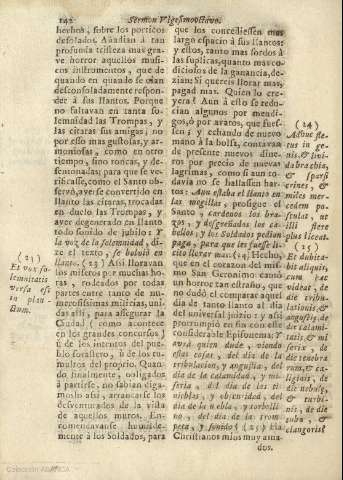 142 Sermon Vigesimooctavo.
hechos, sobre los porticos
desolados. Añadian á tan
profunda tristeza mas gra-
ve horror aquellos musi-
cos instrumentos, que de
quando en quando se oian
desconsoladamente respon-
der à sus llantos. Porque
no faltavan en tanta so-
lemnidad las Trompas, y
las citaras sus amigas; no
por esso mas gustosas, y ar-
moniosas, como en otro
tiempo, sino roncas, y de-
sentonadas; para que se ve-
rificasse, como el Santo ob-
servò, averse convertido en
llanto las citaras, trocadas
en duelo las Trompas, y
aver degenerado en llanto
todo sonido de jubilo: Y
la voz de la solemnidad, di-
ze el texto, se bolviò en
llanto. (23) Assi lloravan
los miseros por muchas ho-
ras, rodeados por todas
partes entre tanto de nu-
merosissimas militares, uni-
das alli, para assegurar la
Ciudad (como acontece
en los grandes concursos)
ù de los intentos del pue-
blo forastero, ù de los tu-
multos del proprio. Quan-
do finalmente, obligados
à partirse, no sabian cier-
mos alsi, arrancarse los
desventurados de la vista
de aquellos muros. En-
comendavanse humilde-
mente à los Soldados, para
(23)
Et vox so-
lemnitatis
versa est
in plan-
ctum.
que los concediessen mas
largo espacio à sus llantos:
y estos, tanto mas sordos à
las suplicas, quanto mas co-
diciosos de la ganancia, de-
zian: Si quereis llorar mas,
pagad mas. Quien lo cre-
yera! Aun à ello se redu-
cian algunos por mendi-
gos, ò por avaros, que fues-
sen; y echando de nuevo
mano à la bolsa, contavan
de presente nuevos dine-
ros por precio de nuevas
lagrimas, como si aun to-
davia no se hallassen har-
tos: Aun estaba el llanto en
las megillas, prosigue el
Santo, cardenos los bra-
zos, y desgreñados los ca-
bellos, y los Soldados pedian
paga, para que les fuesse li-
cito llorar mas. (24) Hecho,
que en el corazon del mis-
mo San Geronimo causò
un horror tan estraño, que
no dudò el comparar aquel
dia de tanto llanto al dia
del universal juizio: y assi
prorrumpiò en fin con este
considerable Epifonema: Y
avrà quien dude, viendo
estas cosas, del dia de la
tribulacion, y angustia, del
dia de la calamidad, y mi-
seria, del dia de las ti-
nieblas, y obscuridad, del
dia de la niebla, y torbelli-
no, del dia de la trom-
peta, y sonido? (25) Ea
Christianos mios muy ama-
dos.
(24)
Adhuc fle-
tus in ge-
nis, & livi-
da brachia,
& sparsi
crines, &
miles mer-
cedem po-
stulat, ut
illi flere
plus liceat.
(25)
Et dubita-
bit aliquis,
cum hæc
videat, de
die tribu-
lationis, &
angustiæ, de
die calami-
tatis, & mi-
seriæ, de
die tenebra
rum, & ca-
liginis, de
die nebulæ,
& turbi-
nis, de die
tubæ, &
clangoris?
Colección